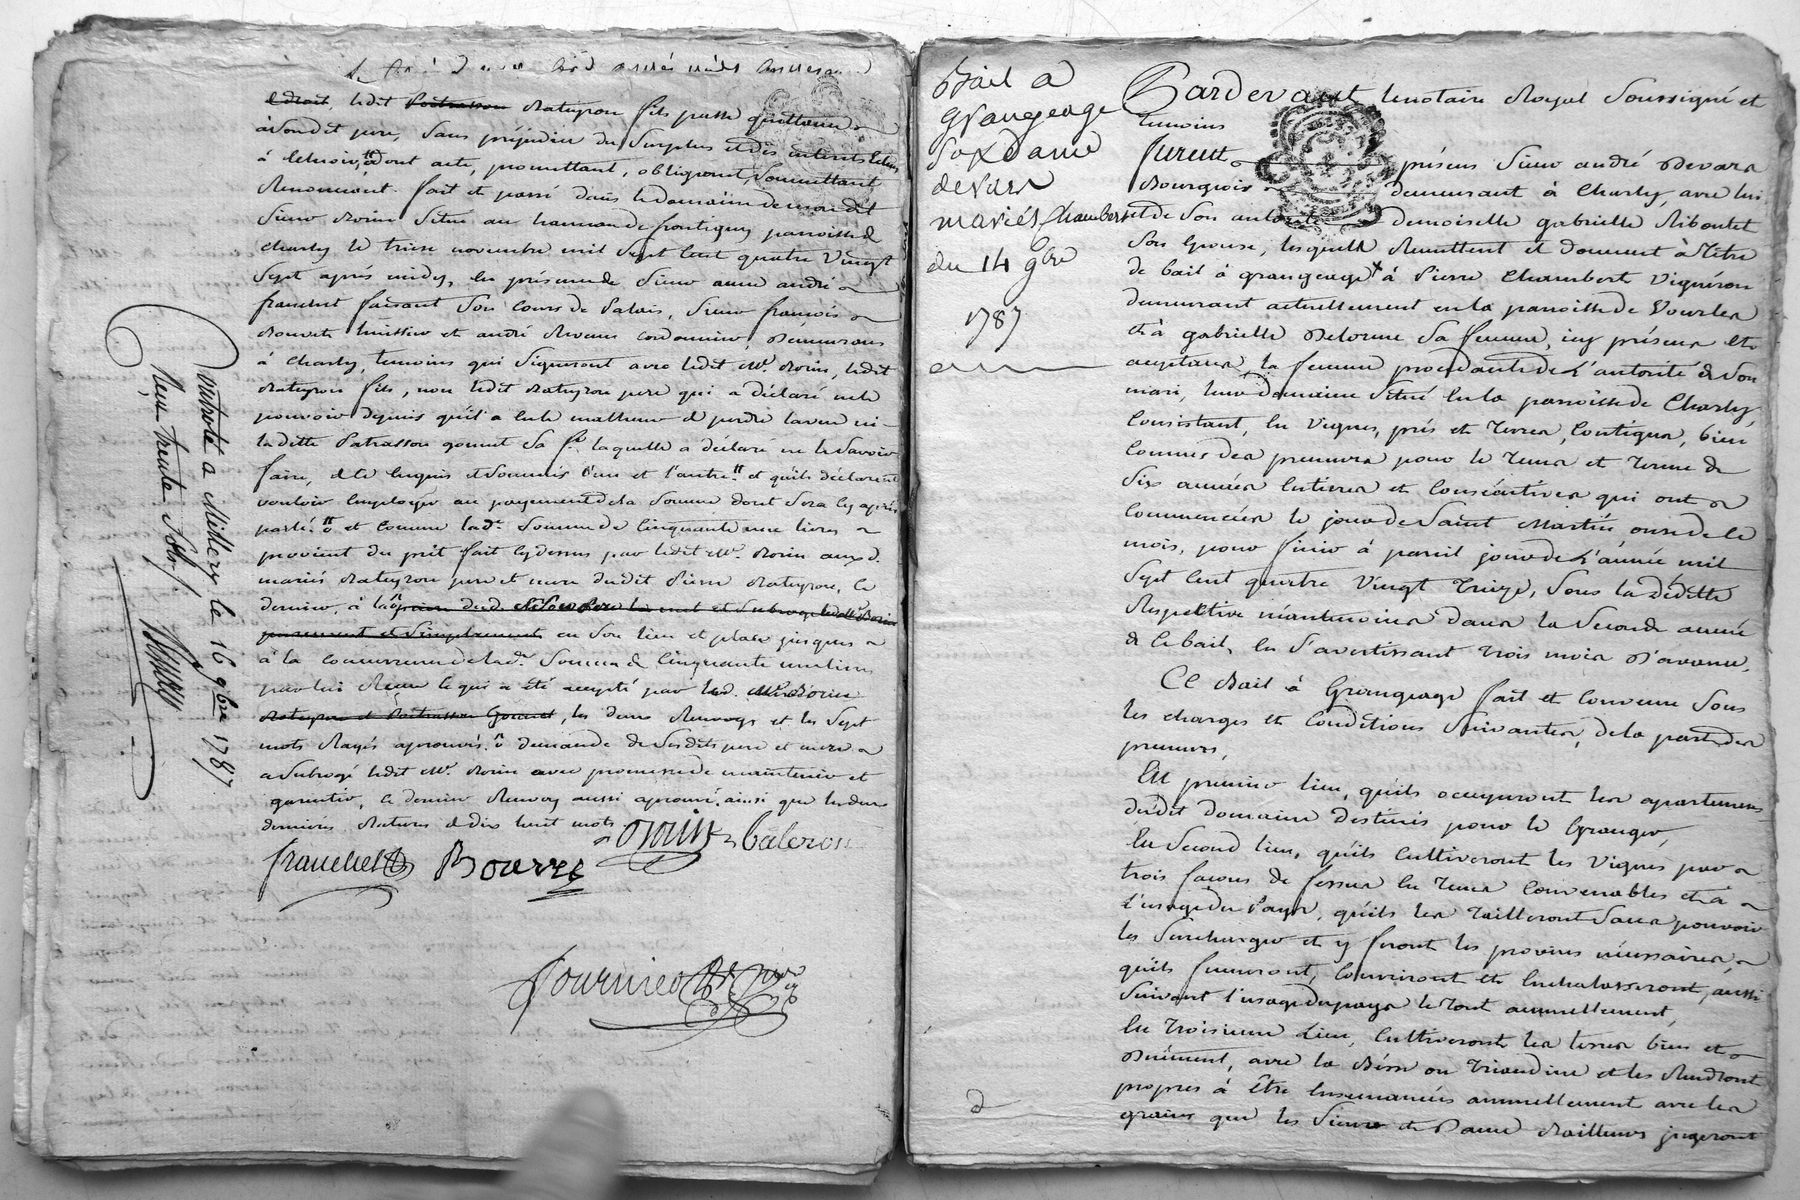 ledroit, ledit Patrasson Rateyron fils passe quittance
à sondit pere, sans préjudice du surplus et des interets
à dont acte, promettant, obligeant, soumettant,
Renonceant. fait et passé dans le domaine de mondit
Sieur Morin situé au hameau de frontigny parroisse de
Charly le treise novembre mil sept cent quatre vingt
sept après midy, en présence de Sieur anne andré
franchet faisant son cours de Palais, Sieur françois
huissier et andré cordonnier, Demeurans
à Charly, temoins qui signeront avec ledit Mr. Morin, ledit
Rateyron fils, non ledit Rateyron pere qui a déclaré ne le
pouvoir depuis qu'il a eu le malheur de perdre la vue ni
laditte Patrasson gonnet sa fe. laquelle a déclaré ne le savoir
faire, de ce enquis et sommés l'un et l'autre. et qu'ils déclarent
vouloir employer au payement de la somme dont sera cy après
parlé. et comme lade. somme de cinquante une livres
provient du prêt fait cy dessus par ledit Mr. Morin aux d.
mariés Rateyron pere et mere dudit Pierre Rateyron, ce
dernier, à la
purement et simplement en son lieu et place jusques
à la concurrence de lade. somme de cinquante une livres
par lui Reçue ce qui a été accepté par led. Mr. Morin
Rateyron et Patrasson Gonnet, les deux Renvoys et les sept
mots Rayés aprouvés. demande de sesdits pere et mere
a subrogé ledit Mr. Morin avec promesse de maintenir et
garentir, ce dernier Renvoy aussi aprouvé, ainsi que les deux
dernières Ratures de dix huit mots
Morin
franchet
Fournier
Controlé a Millery le 16 9bre 1787
Reçu trente sols
Bail a
Grangeage
par Sr. & Dame
devars
mariés Chambert
du 14 9bre
1787
Pardevant le notaire Royal soussigné et
temoins
furent présens Sieur andré Devars
Bourgeois demeurant à Charly, avec lui
et de son autorité demoiselle gabrielle Riboulet
son épouse, lesquels Remettent et donnent à titre
de bail à grangeage à Pierre Chambert Vigneron
demeurant actuellement en la parroisse de Vourles
et à gabrielle Delorme sa femme, icy présens et
acceptans, la femme procedante de l'autorité de son
mari, leur domaine situé en la parroisse de Charly,
consistant, en vignes, prés et terres, contigus, bien
connus des preneurs pour le tems et terme de
six années entieres et consécutives qui ont
commencées le jour de Saint Martin, onze de ce
mois, pour finir à pareil jour de l'année mil
sept cent quatre vingt treize, sous la dédite
Respective néantmoins dans la seconde année
de ce bail, en s'avertissant trois mois d'avance.
Ce Bail à Grangeage fait et convenu sous
les charges et conditions suivantes, de la part des
preneurs,
En premier lieu, qu'ils occuperont les apartemens
dudit domaine destinés pour le Granger,
En second lieu, qu'ils cultiveront les vignes par
trois façons de fessou en tems convenables et à
l'usage du Pays, qu'ils les tailleront sans pouvoir
les surcharger et y feront les provins nécessaires,
qu'ils fumeront, couvriront et enchalasseront, aussi
suivant l'usage du pays le tout annuellement,
En troisieme lieu, cultiveront les terres bien et
duement, avec la Bêse ou triandine et les Rendront
propres à être ensemencées annuellement avec les
grains que les Sieur et Dame Bailleurs jugeront